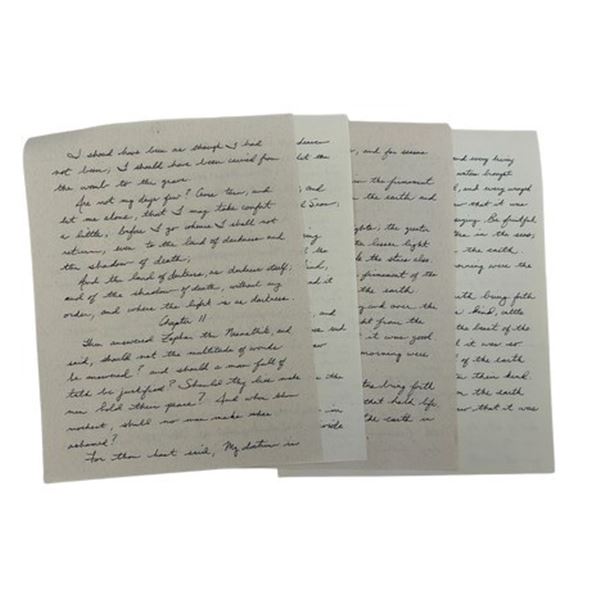 I should have been as though I had
not been; I should have been carried from
the womb to the grave.
Are not my days few? Cease then, and
let me alone, that I may take comfort
a little, before I go whence I shall not
return, even to the land of darkness and
the shadow of death;
And the land of darkness, as darkness itself;
and of the shadow of death, without any
order, and where the light is as darkness.
Chapter 11
Then answered Zophar the Naamathite, and
said, should not the multitude of words
be answered? and should a man full of
talk be justified? Should thy lies make
men hold their peace? And when thou
mockest, shall no man make thee
ashamed?
For thou hast said, My doctrine is
let the
and
Seas;
the
and it
and
in
, and for seasons
the firmament
the earth and
the lesser light
the stars also.
firmament of the
the earth.
and over the
from the
it was good
morning were
bring forth
that hath life,
the earth in
and every living
waters brought
and every winged
that it was
saying, Be fruitful
in the seas;
the earth.
morning were the
bring forth
kind, cattle
the beast of the
it was so
of the earth
their kind.
the earth
that it was